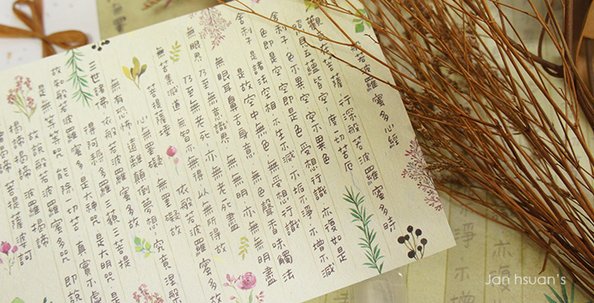 般若波羅蜜多心經
觀自在菩薩 行深般若波羅蜜多時
照見五蘊皆空 度一切苦厄
舍利子 色不異空 空不異色
色即是空 空即是色 受想行識 亦復如是
舍利子 是諸法空相 不生不滅 不垢不淨 不增不減
是故空中無色 無受想行識
無眼耳鼻舌身意 無色聲香味觸法
無眼界 乃至無意識界 無無明 亦無無明盡
乃至無老死 亦無老死盡
無苦集滅道 無智亦無得 以無所得故
菩提薩埵 依般若波羅蜜多故
心無罣礙 無罣礙故
無有恐怖 遠離顛倒夢想 究竟涅槃
三世諸佛 依般若波羅蜜多故
得阿耨多羅三藐三菩提
故知般若波羅蜜多 是大神咒 是大明咒
能除一切苦 真實不虛
故說般若波羅蜜多咒 即說
揭諦揭諦 波羅揭諦
菩提薩婆訶
Jan hsuan's